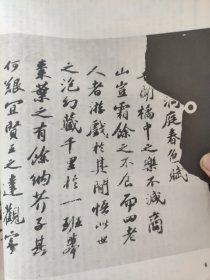 洞庭春色賦
聞橘中之樂不減商
山豈霜餘之不食而四老
人者游戲於其間悟此世
之泡幻藏千里於一班舉
棗葉之有餘納芥子其
何艱宜賢王之達觀寄